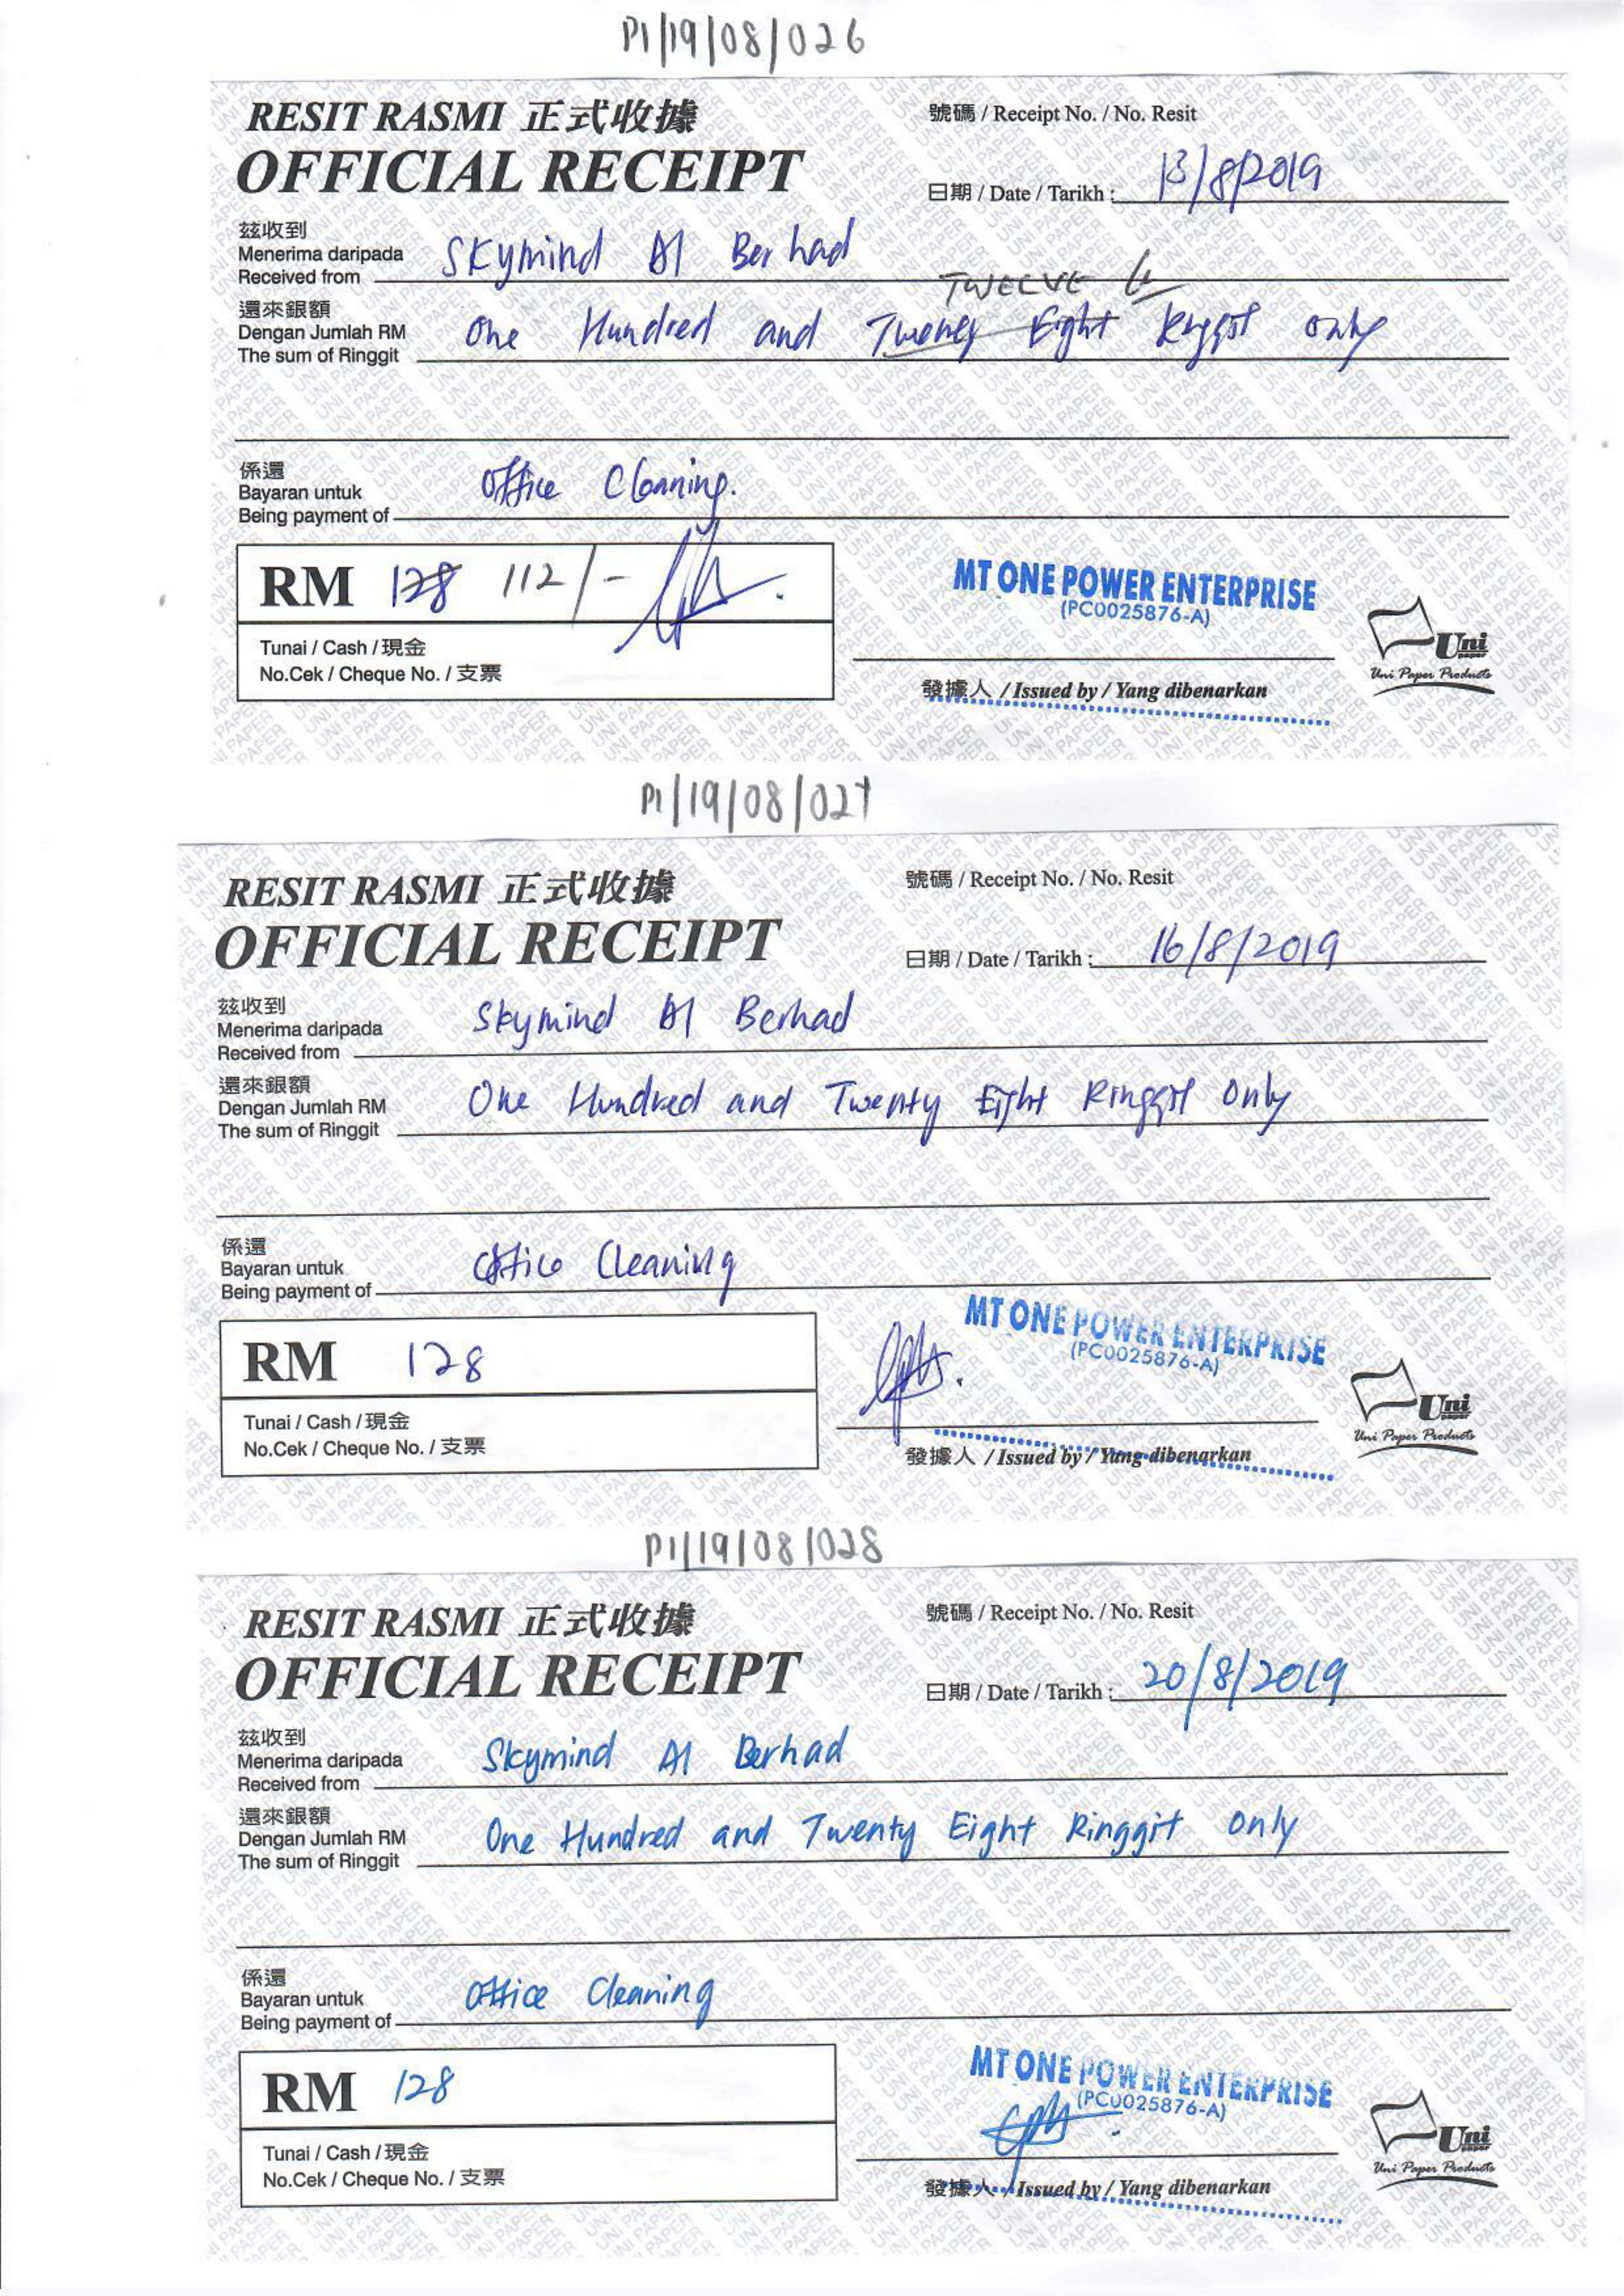 P1/19/08/026
RESIT RASMI 正式收據
OFFICIAL RECEIPT
號碼 / Receipt No. / No. Resit
日期 / Date / Tarikh : 13/8/2019
茲收到
Menerima daripada
Received from Skymind AI Berhad
TWELVE
還來銀額
Dengan Jumlah RM
The sum of Ringgit One Hundred and Twenty Eight Ringgit only
係還
Bayaran untuk
Being payment of Office Cleaning.
RM 128 112/-
Tunai / Cash / 現金
No.Cek / Cheque No. / 支票
MT ONE POWER ENTERPRISE
(PC0025876-A)
發據人 / Issued by / Yang dibenarkan
Uni
paper
Uni Paper Products
P1/19/08/027
RESIT RASMI 正式收據
OFFICIAL RECEIPT
號碼 / Receipt No. / No. Resit
日期 / Date / Tarikh : 16/8/2019
茲收到
Menerima daripada
Received from Skymind AI Berhad
還來銀額
Dengan Jumlah RM
The sum of Ringgit One Hundred and Twenty Eight Ringgit Only
係還
Bayaran untuk
Being payment of Office Cleaning
RM 128
Tunai / Cash / 現金
No.Cek / Cheque No. / 支票
MT ONE POWER ENTERPRISE
(PC0025876-A)
發據人 / Issued by / Yang dibenarkan
Uni
paper
Uni Paper Products
P1/19/08/028
RESIT RASMI 正式收據
OFFICIAL RECEIPT
號碼 / Receipt No. / No. Resit
日期 / Date / Tarikh : 20/8/2019
茲收到
Menerima daripada
Received from Skymind AI Berhad
還來銀額
Dengan Jumlah RM
The sum of Ringgit One Hundred and Twenty Eight Ringgit only
係還
Bayaran untuk
Being payment of Office Cleaning
RM 128
Tunai / Cash / 現金
No.Cek / Cheque No. / 支票
MT ONE POWER ENTERPRISE
(PC0025876-A)
發據人 / Issued by / Yang dibenarkan
Uni
paper
Uni Paper Products